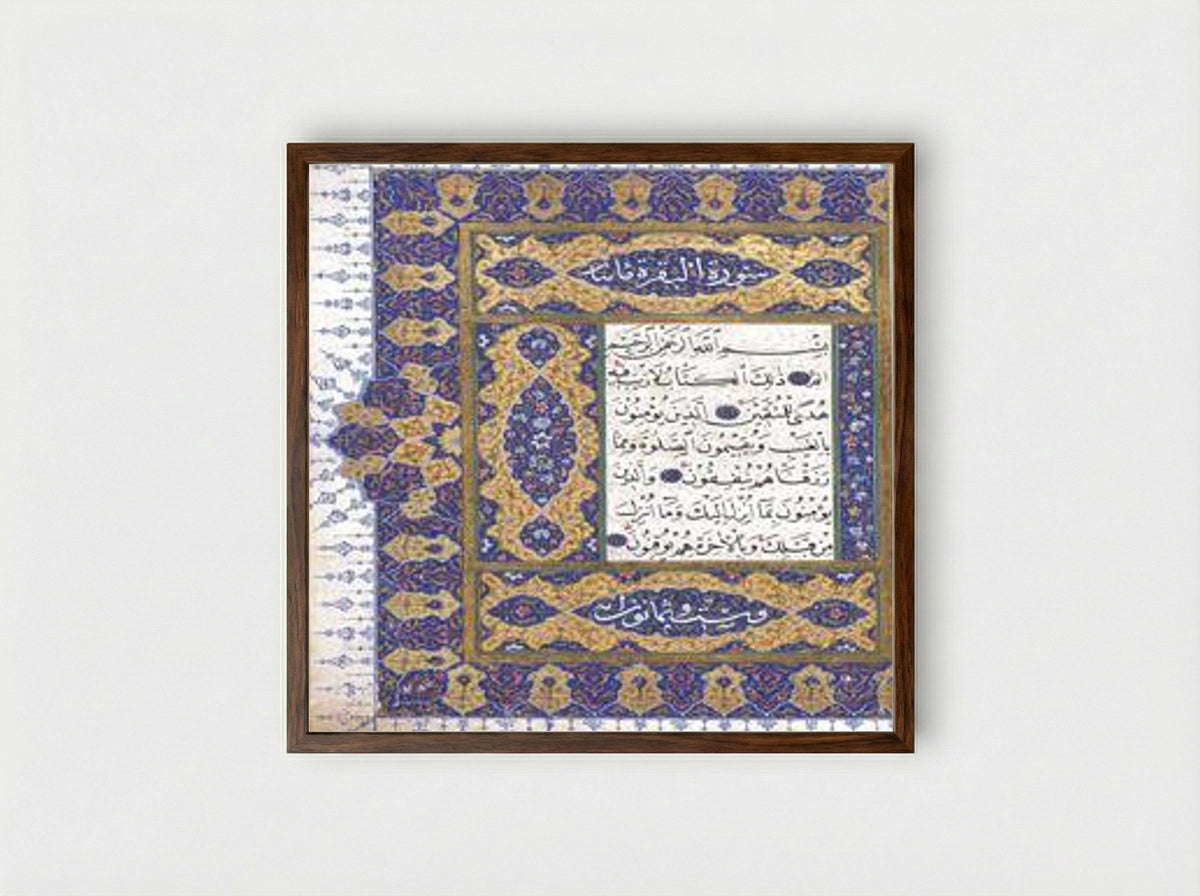 سورة البقرة مائتا
بسم الله الرحمن الرحيم
الم ذلك الكتاب لا ريب فيه
هدى للمتقين الذين يؤمنون
بالغيب ويقيمون الصلوة ومما
رزقناهم ينفقون والذين
يؤمنون بما أنزل إليك وما أنزل
من قبلك وبالآخرة هم يوقنون
وست وثمانون